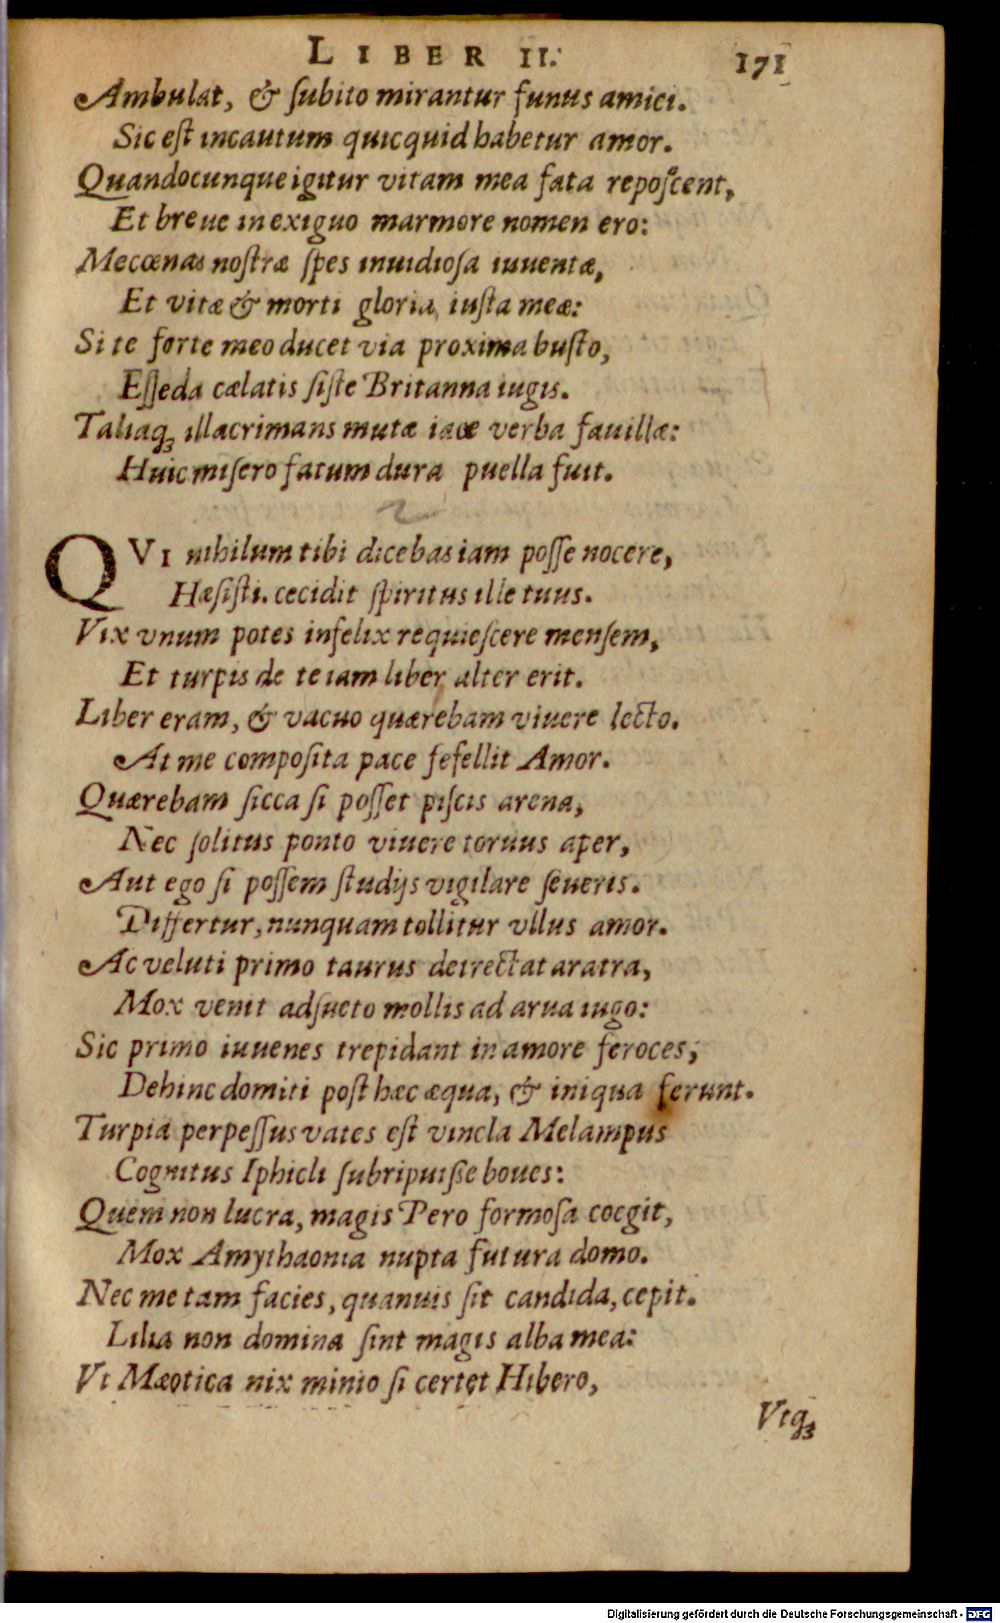 LIBER II. 171
Ambulat, & ſubito mirantur funus amici.
Sic eſt incautum quicquid habetur amor.
Quandocunque igitur vitam mea fata repoſcent,
Et breue in exiguo marmore nomen ero:
Mecœnas noſtræ ſpes inuidioſa iuuentæ,
Et vitæ & morti gloria iuſta meæ:
Si te forte meo ducet via proxima buſto,
Eſſeda cælatis ſiſte Britanna iugis.
Taliaqꝫ illacrimans mutæ iace verba fauillæ:
Huic miſero fatum dura puella fuit.
2
QVI nihilum tibi dicebas iam poſſe nocere,
Hæſiſti. cecidit ſpiritus ille tuus.
Vix vnum potes infelix requieſcere menſem,
Et turpis de te iam liber alter erit.
Liber eram, & vacuo quærebam viuere lecto.
At me compoſita pace fefellit Amor.
Quærebam ſicca ſi poſſet piſcis arena,
Nec ſolitus ponto viuere toruus aper,
Aut ego ſi poſſem ſtudijs vigilare ſeueris.
Differtur, nunquam tollitur vllus amor.
Ac veluti primo taurus detrectat aratra,
Mox venit adſueto mollis ad arua iugo:
Sic primo iuuenes trepidant in amore feroces,
Dehinc domiti poſt hæc æqua, & iniqua ferunt.
Turpia perpeſſus vates eſt vincla Melampus
Cognitus Iphicli ſubripuiſſe boues:
Quem non lucra, magis Pero formoſa coegit,
Mox Amythaonia nupta futura domo.
Nec me tam facies, quanuis ſit candida, cepit.
Lilia non domina ſint magis alba mea:
Vt Mæotica nix minio ſi certet Hibero,
Vtqꝫ
Digitalisierung gefördert durch die Deutsche Forschungsgemeinschaft - DFG